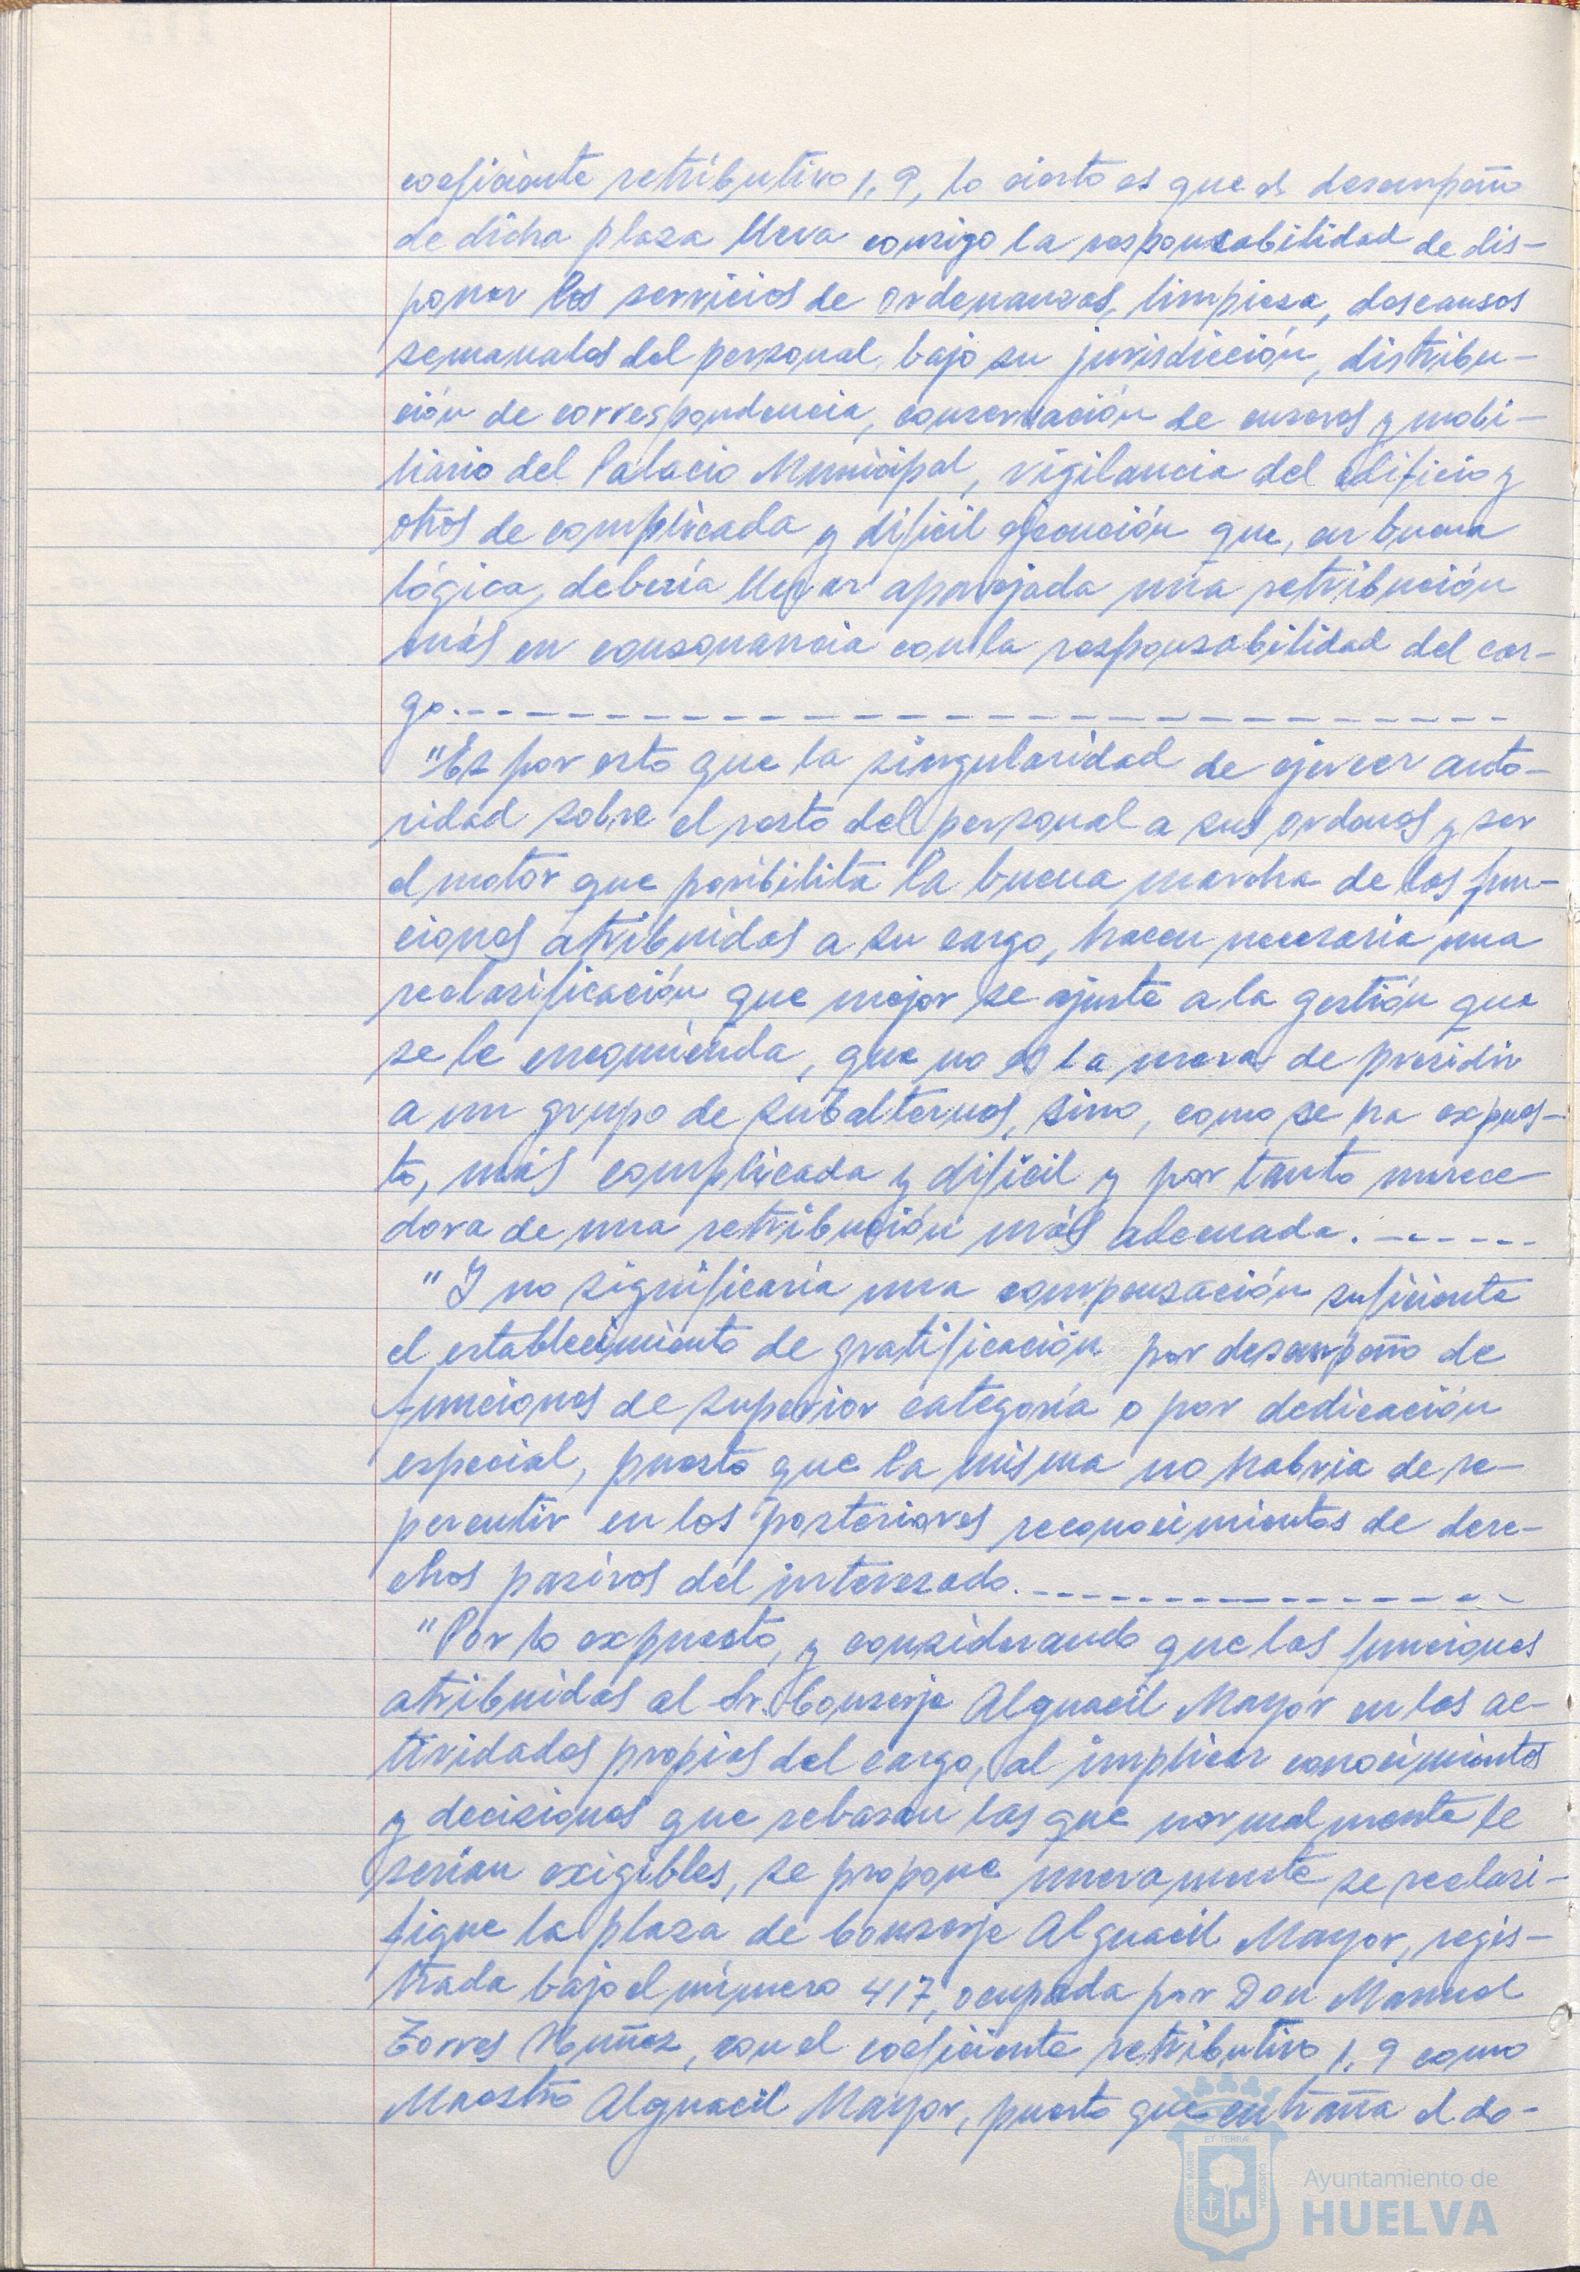 coeficiente retributivo 1,9, lo cierto es que el desempeño
de dicha plaza lleva consigo la responsabilidad de dis-
poner los servicios de ordenanzas, limpieza, descansos
semanales del personal bajo su jurisdicción, distribu-
ción de correspondencia, conservación de enseres y mobi-
liario del Palacio Municipal, vigilancia del edificio y
otros de complicada y difícil ejecución que, en buena
lógica, debería llevar aparejada una retribución
más en consonancia con la responsabilidad del car-
go.
"Es por esto que la singularidad de ejercer auto-
ridad sobre el resto del personal a sus ordenes y ser
el motor que posibilita la buena marcha de las fun-
ciones atribuidas a su cargo, hacen necesaria una
reclasificación que mejor se ajuste a la gestión que
se le encomienda, que no es la mera de presidir
a un grupo de subalternos, sino, como se ha expues-
to, más complicada y difícil y por tanto merece
dora de una retribución más adecuada.
"Y no significaría una compensación suficiente
el establecimiento de gratificación por desempeño de
funciones de superior categoría o por dedicación
especial, puesto que la misma no habria de re-
percutir en los posteriores reconocimientos de dere-
chos pasivos del interesado.
"Por lo expuesto, y considerando que las funciones
atribuidas al Sr. Conserje Alguacil Mayor en las ac-
tividades propias del cargo, al implicar conocimientos
y decisiones que rebasan las que normalmente le
serian exigibles, se propone nuevamente se reclasi-
fique la plaza de Conserje Alguacil Mayor, regis-
trada bajo el número 417, ocupada por Don Manuel
Torres Nuñez, con el coeficiente retributivo 1,9 como
Maestro Alguacil Mayor, puesto que entraña el de-
PORTUS MARIS
ET TERRÆ
CUSTODIA
Ayuntamiento de
HUELVA